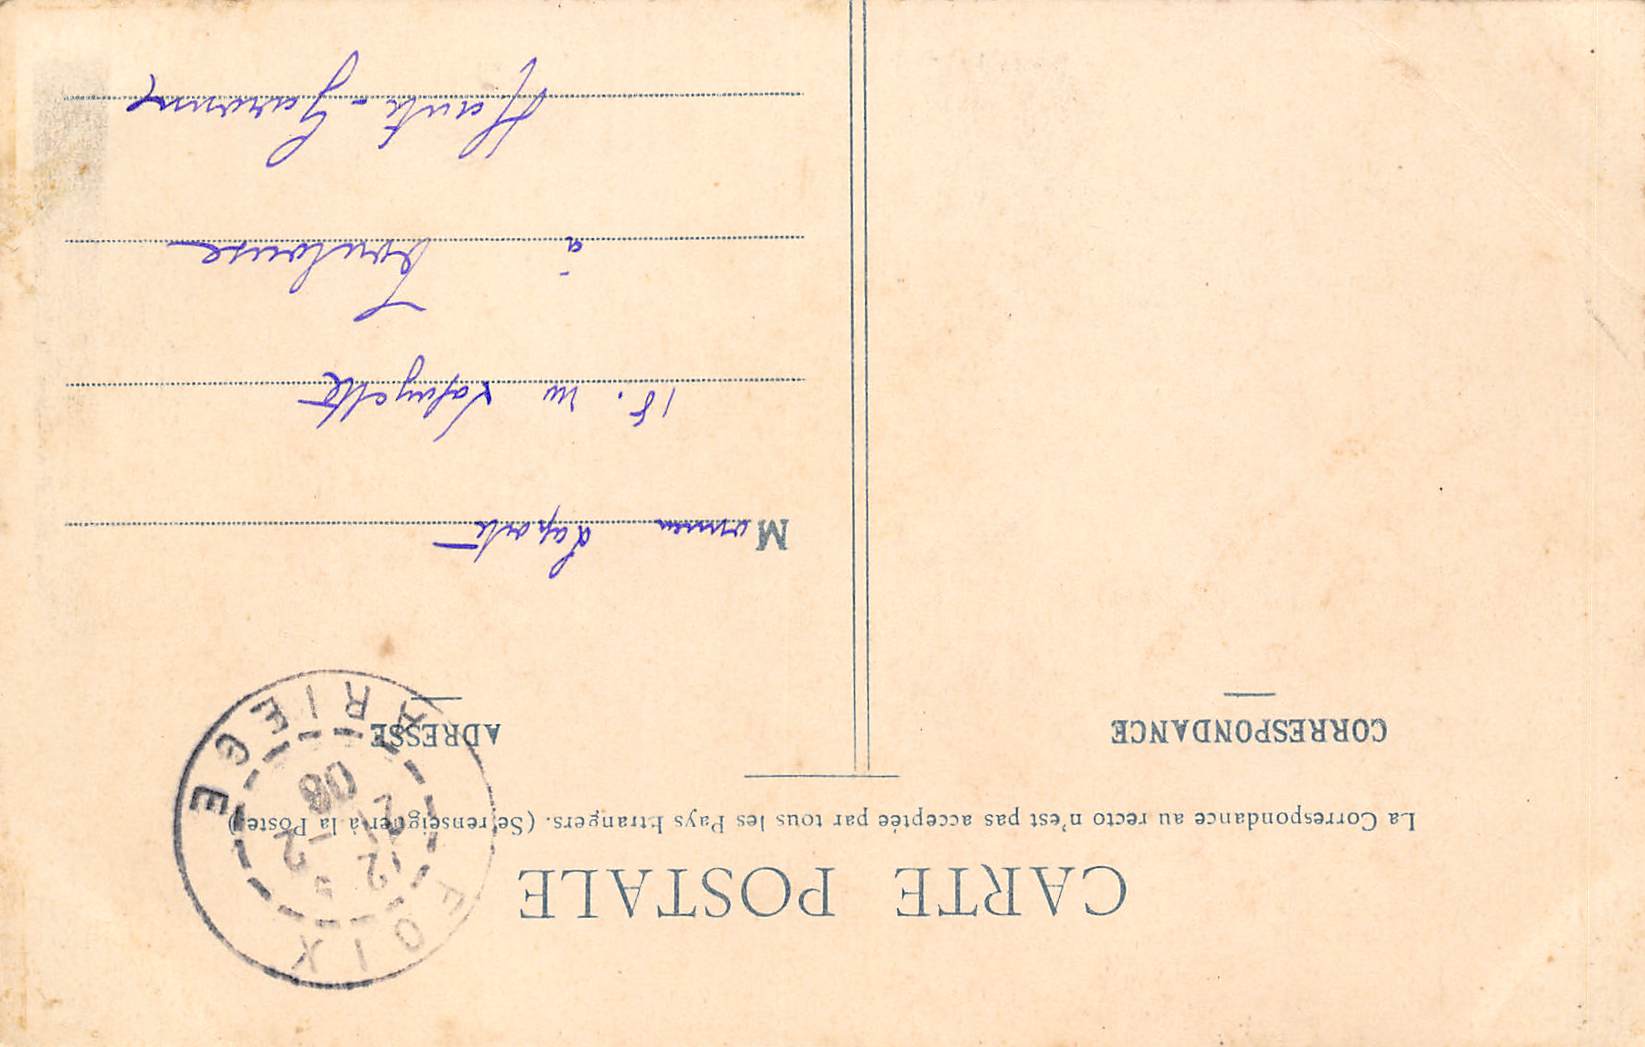 CARTE POSTALE
La Correspondance au recto n'est pas acceptée par tous les Pays Etrangers. (Se renseigner à la Poste)
CORRESPONDANCE
ADRESSE
FOIX
ARIEGE
08
M Laporte
18. rue Lafayette
à Toulouse
Haute-Garonne